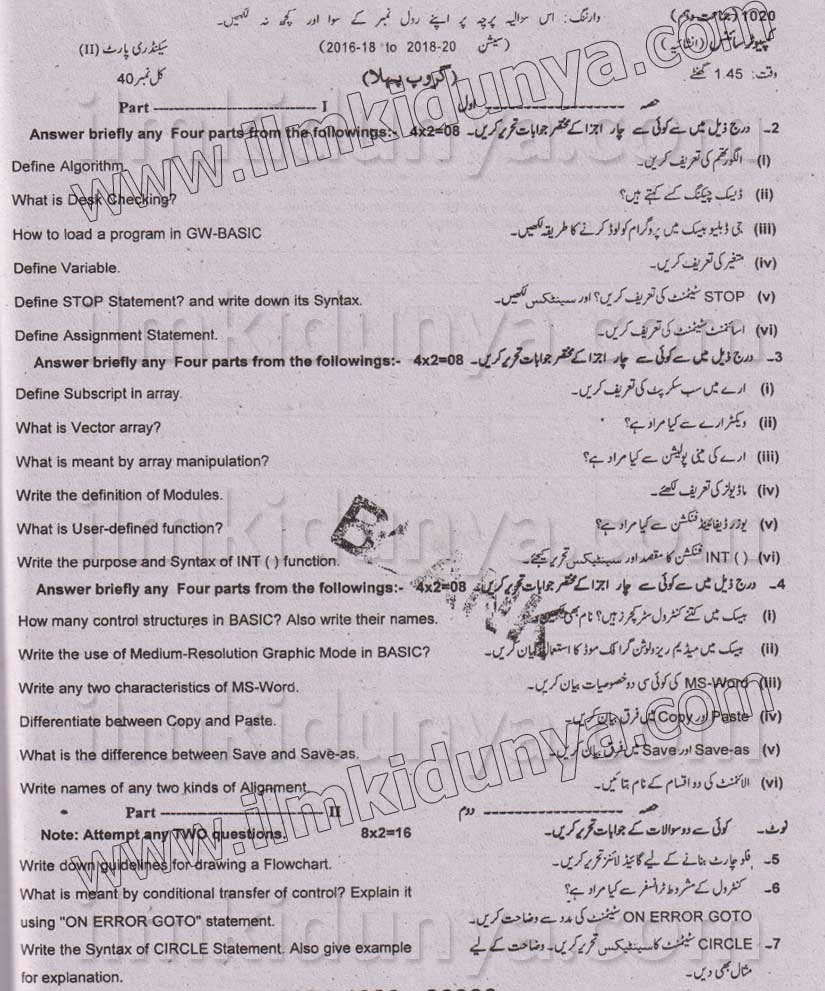 1020 (جماعت دہم) وارننگ: اس سوالیہ پرچہ پر اپنے رول نمبر کے سوا اور کچھ نہ لکھیں۔
کمپیوٹر سائنس (انشائیہ) (سیشن 2016-18 to 2018-20) سیکنڈری پارٹ (II)
وقت: 1.45 گھنٹے (گروپ پہلا) کل نمبر 40
Part ---------------------- I حصہ ---------------------- اول
Answer briefly any Four parts from the followings:- 4x2=08 2۔ درج ذیل میں سے کوئی سے چار اجزا کے مختصر جوابات تحریر کریں۔
Define Algorithm. (i) الگورتھم کی تعریف کریں۔
What is Desk Checking? (ii) ڈیسک چیکنگ کسے کہتے ہیں؟
How to load a program in GW-BASIC (iii) جی ڈبلیو بیسک میں پروگرام کو لوڈ کرنے کا طریقہ لکھیں۔
Define Variable. (iv) متغیر کی تعریف کریں۔
Define STOP Statement? and write down its Syntax. (v) STOP سٹیٹمنٹ کی تعریف کریں؟ اور سینٹکس لکھیں۔
Define Assignment Statement. (vi) اسائنمنٹ سٹیٹمنٹ کی تعریف کریں۔
Answer briefly any Four parts from the followings:- 4x2=08 3۔ درج ذیل میں سے کوئی سے چار اجزا کے مختصر جوابات تحریر کریں۔
Define Subscript in array. (i) ارے میں سب سکرپٹ کی تعریف کریں۔
What is Vector array? (ii) ویکٹر ارے سے کیا مراد ہے؟
What is meant by array manipulation? (iii) ارے کی مینی پولیشن سے کیا مراد ہے؟
Write the definition of Modules. (iv) ماڈیولز کی تعریف لکھئے۔
What is User-defined function? (v) یوزر ڈیفائنڈ فنکشن سے کیا مراد ہے؟
Write the purpose and Syntax of INT ( ) function. (vi) INT ( ) فنکشن کا مقصد اور سینٹیکس تحریر کیجئے۔
Answer briefly any Four parts from the followings:- 4x2=08 4۔ درج ذیل میں سے کوئی سے چار اجزا کے مختصر جوابات تحریر کریں۔
How many control structures in BASIC? Also write their names. (i) بیسک میں کتنے کنٹرول سٹرکچرز ہیں؟ نام بھی لکھیں۔
Write the use of Medium-Resolution Graphic Mode in BASIC? (ii) بیسک میں میڈیم ریزولوشن گرافک موڈ کا استعمال بیان کریں۔
Write any two characteristics of MS-Word. (iii) MS-Word کی کوئی سی دو خصوصیات بیان کریں۔
Differentiate between Copy and Paste. (iv) Copy اور Paste میں فرق بیان کریں۔
What is the difference between Save and Save-as. (v) Save اور Save-as میں فرق بیان کریں۔
Write names of any two kinds of Alignment. (vi) الائنمنٹ کی دو اقسام کے نام بتائیں۔
Part ---------------------- II حصہ ---------------------- دوم
Note: Attempt any TWO questions. 8x2=16 نوٹ۔ کوئی سے دو سوالات کے جوابات تحریر کریں۔
Write down guidelines for drawing a Flowchart. 5۔ فلو چارٹ بنانے کے لیے گائیڈ لائنز تحریر کریں۔
What is meant by conditional transfer of control? Explain it 6۔ کنٹرول کے مشروط ٹرانسفر سے کیا مراد ہے؟
using "ON ERROR GOTO" statement. ON ERROR GOTO سٹیٹمنٹ کی مدد سے وضاحت کریں۔
Write the Syntax of CIRCLE Statement. Also give example 7۔ CIRCLE سٹیٹمنٹ کا سینٹیکس تحریر کریں۔ وضاحت کے لیے
for explanation. مثال بھی دیں۔
www.ilmkidunya.com
www.ilmkidunya.com
ilmkidunya.com
ilmkidunya.com
ilmkidunya.com
ilmkidunya.com
ilmkidunya.com
ilmkidunya.com